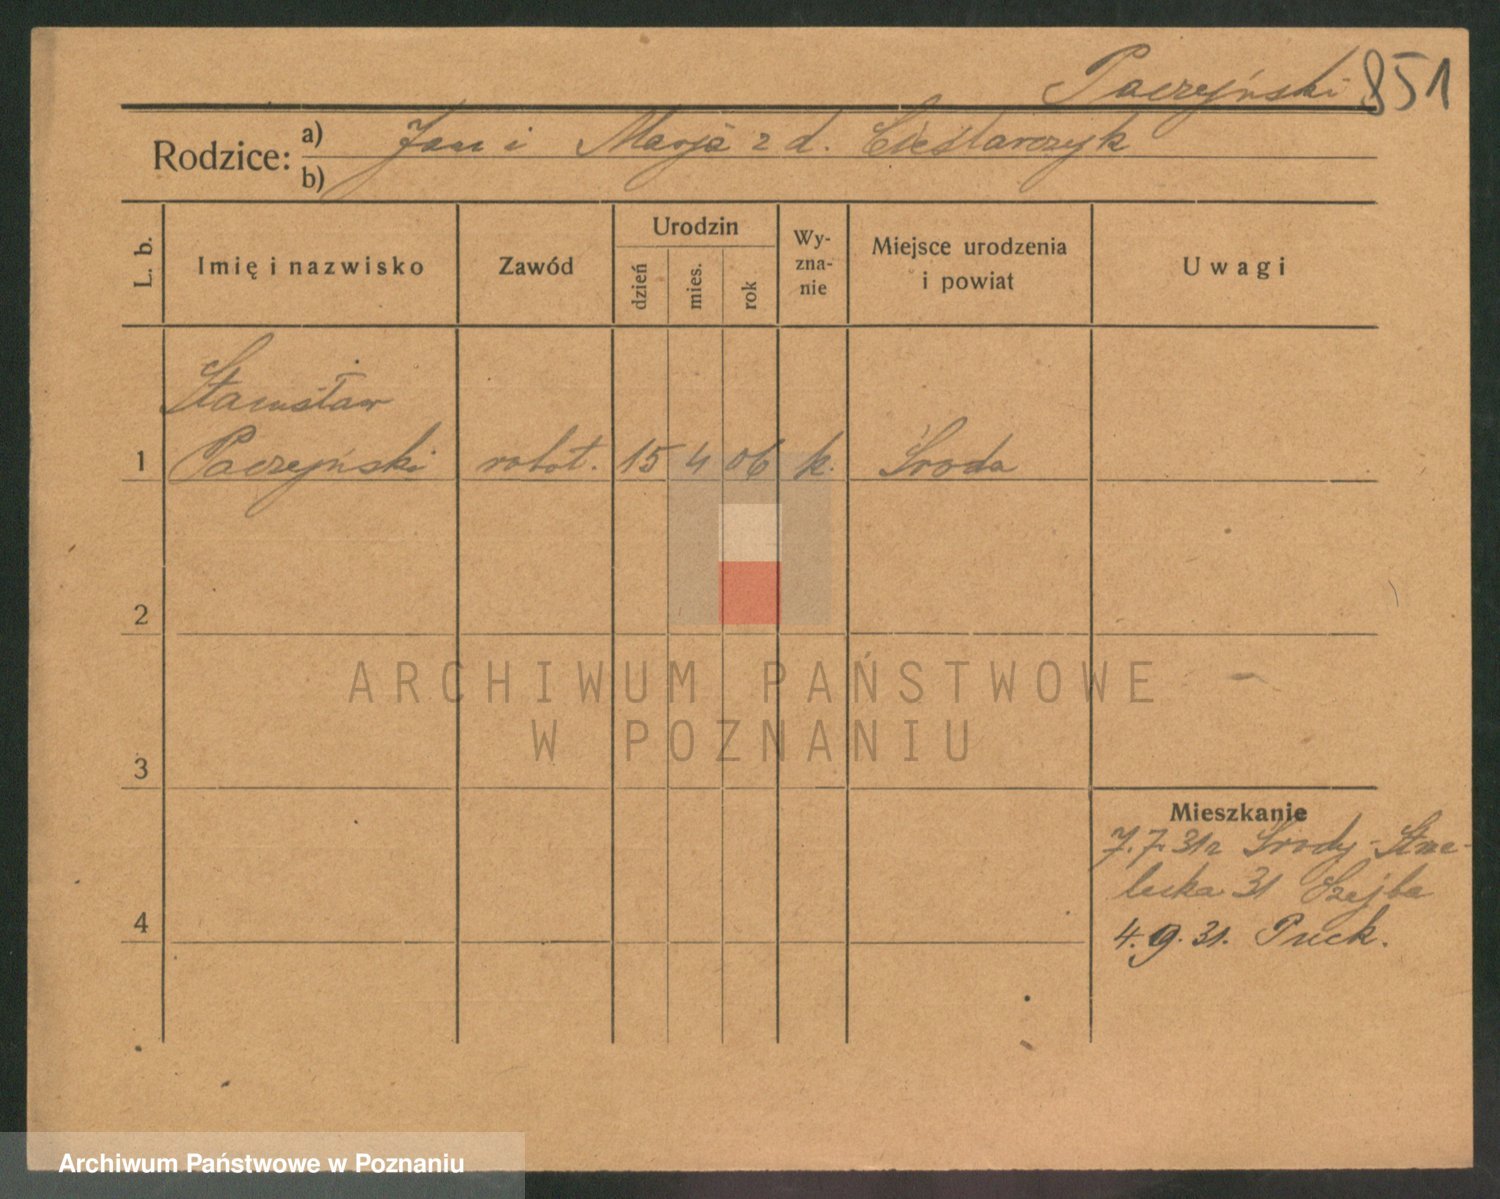 Paczyński 851
Rodzice: a) Jan i Marja z d. Cieślarczyk
b)
L. b. Imię i nazwisko Zawód Urodzin dzień mies. rok Wy-zna-nie Miejsce urodzenia i powiat Uwagi
Stanisław
1 Paczyński robot. 15 4 06 k. Środa
2
ARCHIWUM PAŃSTWOWE
W POZNANIU
3
Mieszkanie
7.7.31 z Środy-Strze-
lecka 31 Szejba
4
4.9.31. Puck.
Archiwum Państwowe w Poznaniu